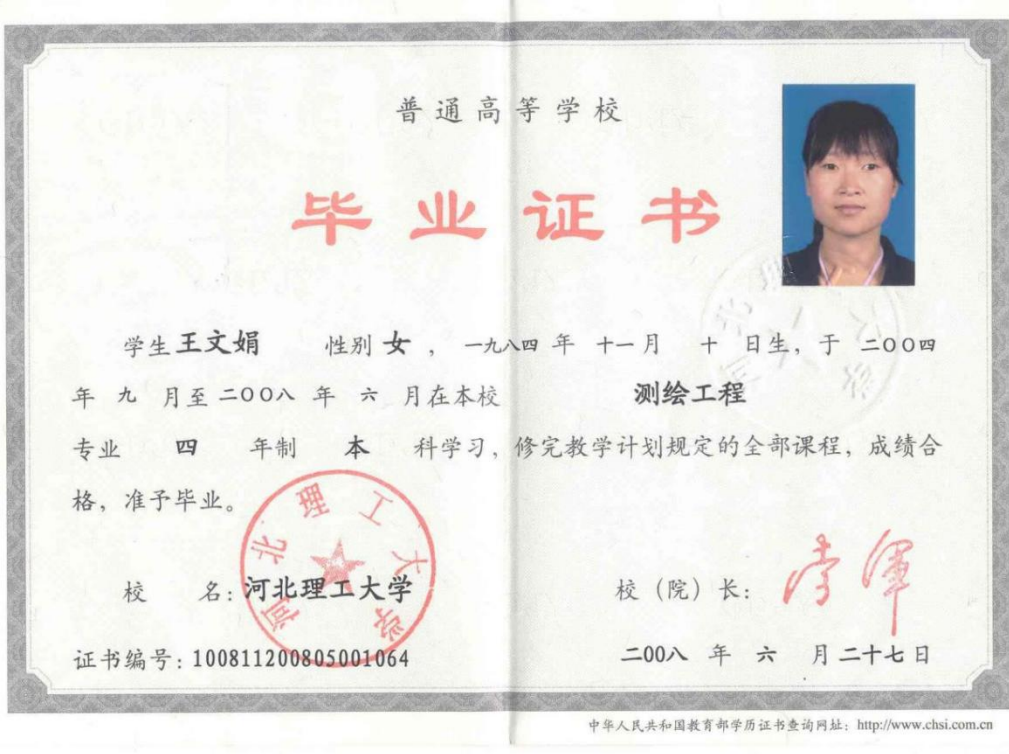 普通高等学校
毕业证书
学生 王文娟 性别 女 ，一九八四 年 十一 月 十 日生，于 二〇〇四
年 九 月至 二〇〇八 年 六 月在本校 测绘工程
专业 四 年制 本 科学习，修完教学计划规定的全部课程，成绩合
格，准予毕业。
河北理工大学
校 名：河北理工大学
校（院）长：
证书编号：100811200805001064
二〇〇八 年 六 月 二十七 日
中华人民共和国教育部学历证书查询网址：http://www.chsi.com.cn